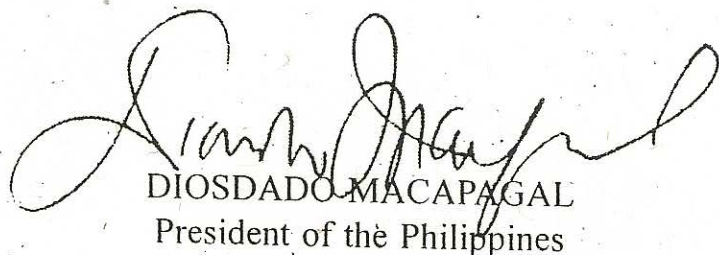 DIOSDADO MACAPAGAL
President of the Philippines